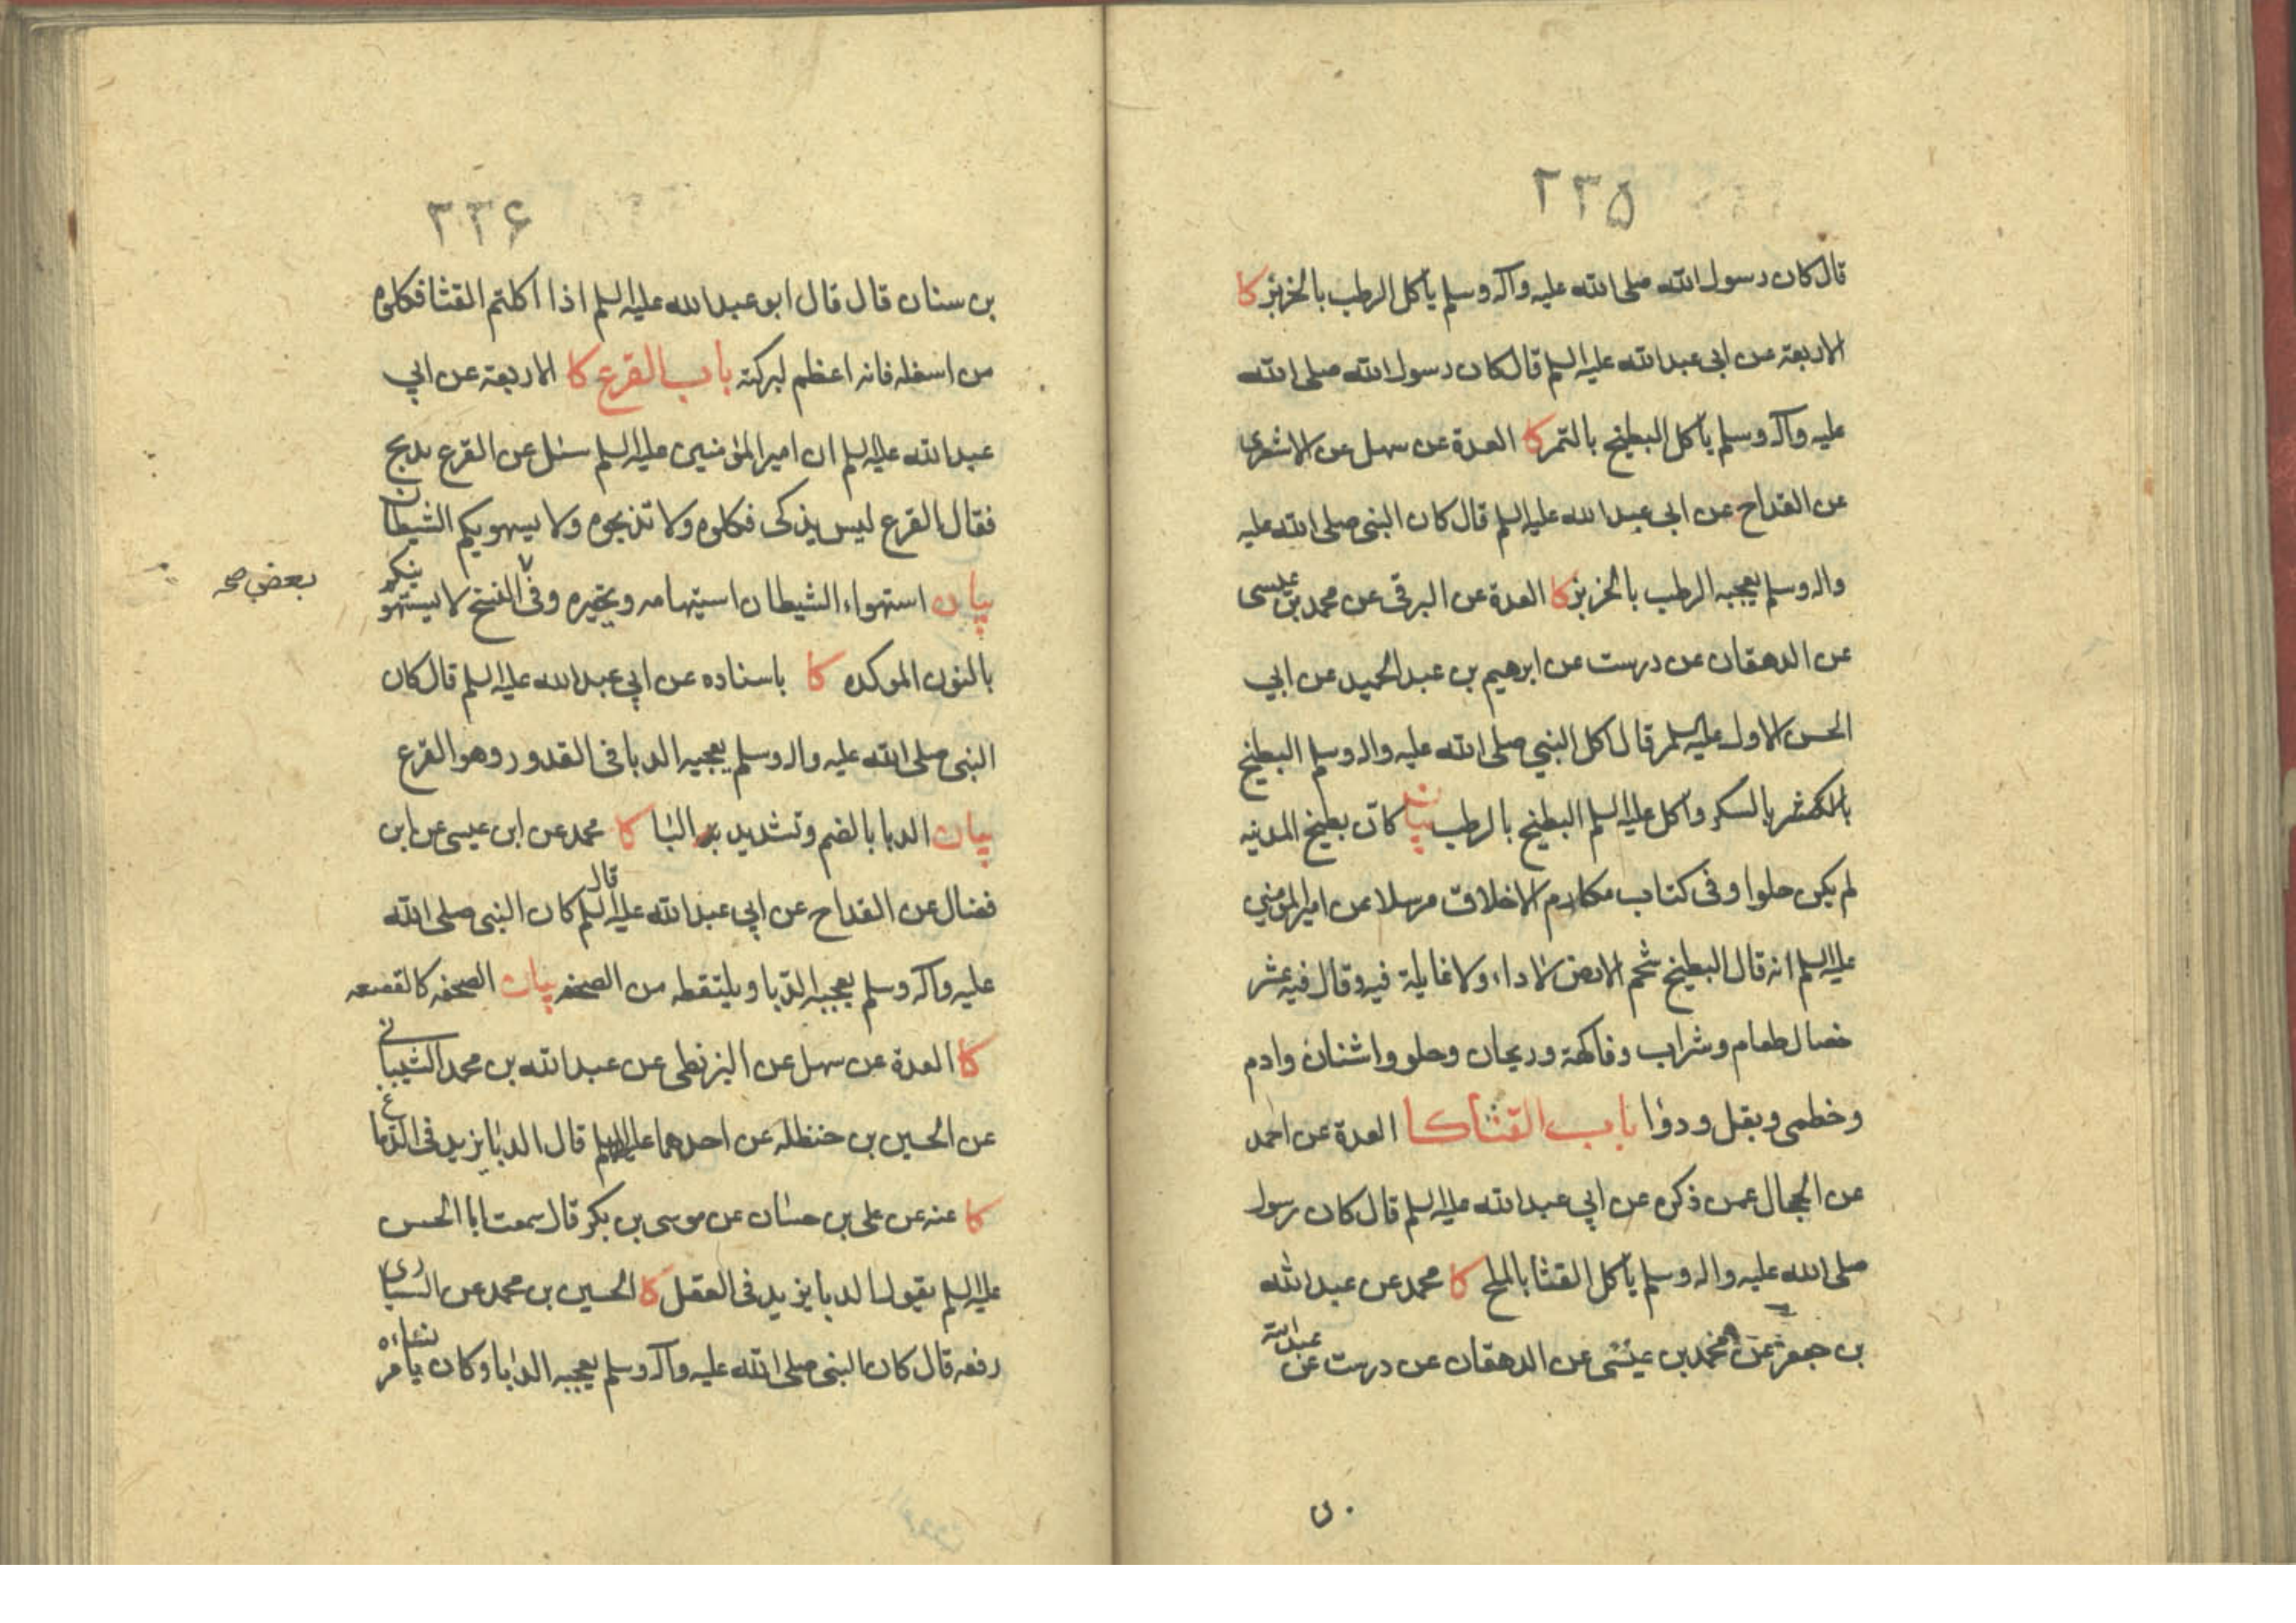 ٢٣۵
قال كان رسول الله صلى الله عليه وآله وسلم يأكل الرطب بالخربز كا
الاربعة عن ابى عبد الله عليه السلم قال كان رسول الله صلى الله
عليه وآله وسلم يأكل البطيخ بالتمر كا العدة عن سهل عن الاشعرى
عن القداح عن ابى عبد الله عليه السلم قال كان النبى صلى الله عليه
واله وسلم يعجبه الرطب بالخربز كا العدة عن البرقى عن محمد بن عيسى
عن الدهقان عن درست عن ابرهيم بن عبد الحميد عن ابي
الحسن الاول عليه السلم قال اكل النبي صلى الله عليه واله وسلم البطيخ
بالسكر وأكل عليه السلم البطيخ بالرطب بيان كان بطيخ المدينه
لم يكن حلوا وفى كتاب مكارم الاخلاق مرسلا عن امير المؤمنين
عليه السلم انه قال البطيخ شحم الارض لا داء ولا غايلة فيه وقال فيه عشر
خصال طعام وشراب وفاكهة وريحان وحلو واشنان وادم
وخطمى وبقل ودوا باب القثا كا العدة عن احمد
عن الحجال عمن ذكره عن ابي عبد الله عليه السلم قال كان رسول
صلى الله عليه واله وسلم يأكل القثا بالملح كا محمد عن عبد الله
بن جعفر عن محمد بن عيسى عن الدهقان عن درست عن عبد الله
٢٣۶
بن سنان قال قال ابو عبد الله عليه السلم اذا اكلتم القثا فكلوه
من اسفله فانه اعظم لبركته باب القرع كا الاربعة عن ابي
عبد الله عليه السلم ان امير المؤمنين عليه السلم سئل عن القرع يذبح
فقال القرع ليس يذكى فكلوه ولا تذبحوه ولا يسهويكم الشيطان
بيان استهواء الشيطان استيهامه وتحيره وفى النسخ لا يستهوينكم
بعض صح
بالنون الموكده كا باسناده عن ابي عبد الله عليه السلم قال كان
النبى صلى الله عليه واله وسلم يعجبه الدبا فى القدور وهو القرع
بيان الدبا بالضم وتشديد البا كا محمد عن ابن عيسى عن ابن
فضال عن القداح عن ابي عبد الله عليه السلم قال كان النبى صلى الله
عليه وآله وسلم يعجبه الدبا ويلتقطه من الصحفه بيان الصحفه كالقصعه
كا العدة عن سهل عن البزنطى عن عبد الله بن محمد الشيبانى
عن الحسين بن حنظله عن احدهما عليهما السلم قال الدبا يزيد فى الدماغ
كا عنه عن على بن حسان عن موسى بن بكر قال سمعت ابا الحسن
عليه السلم يقول الدبا يزيد فى العقل كا الحسين بن محمد عن السيارى
رفعه قال كان النبى صلى الله عليه وآله وسلم يعجبه الدبا وكان يأمر نساءه